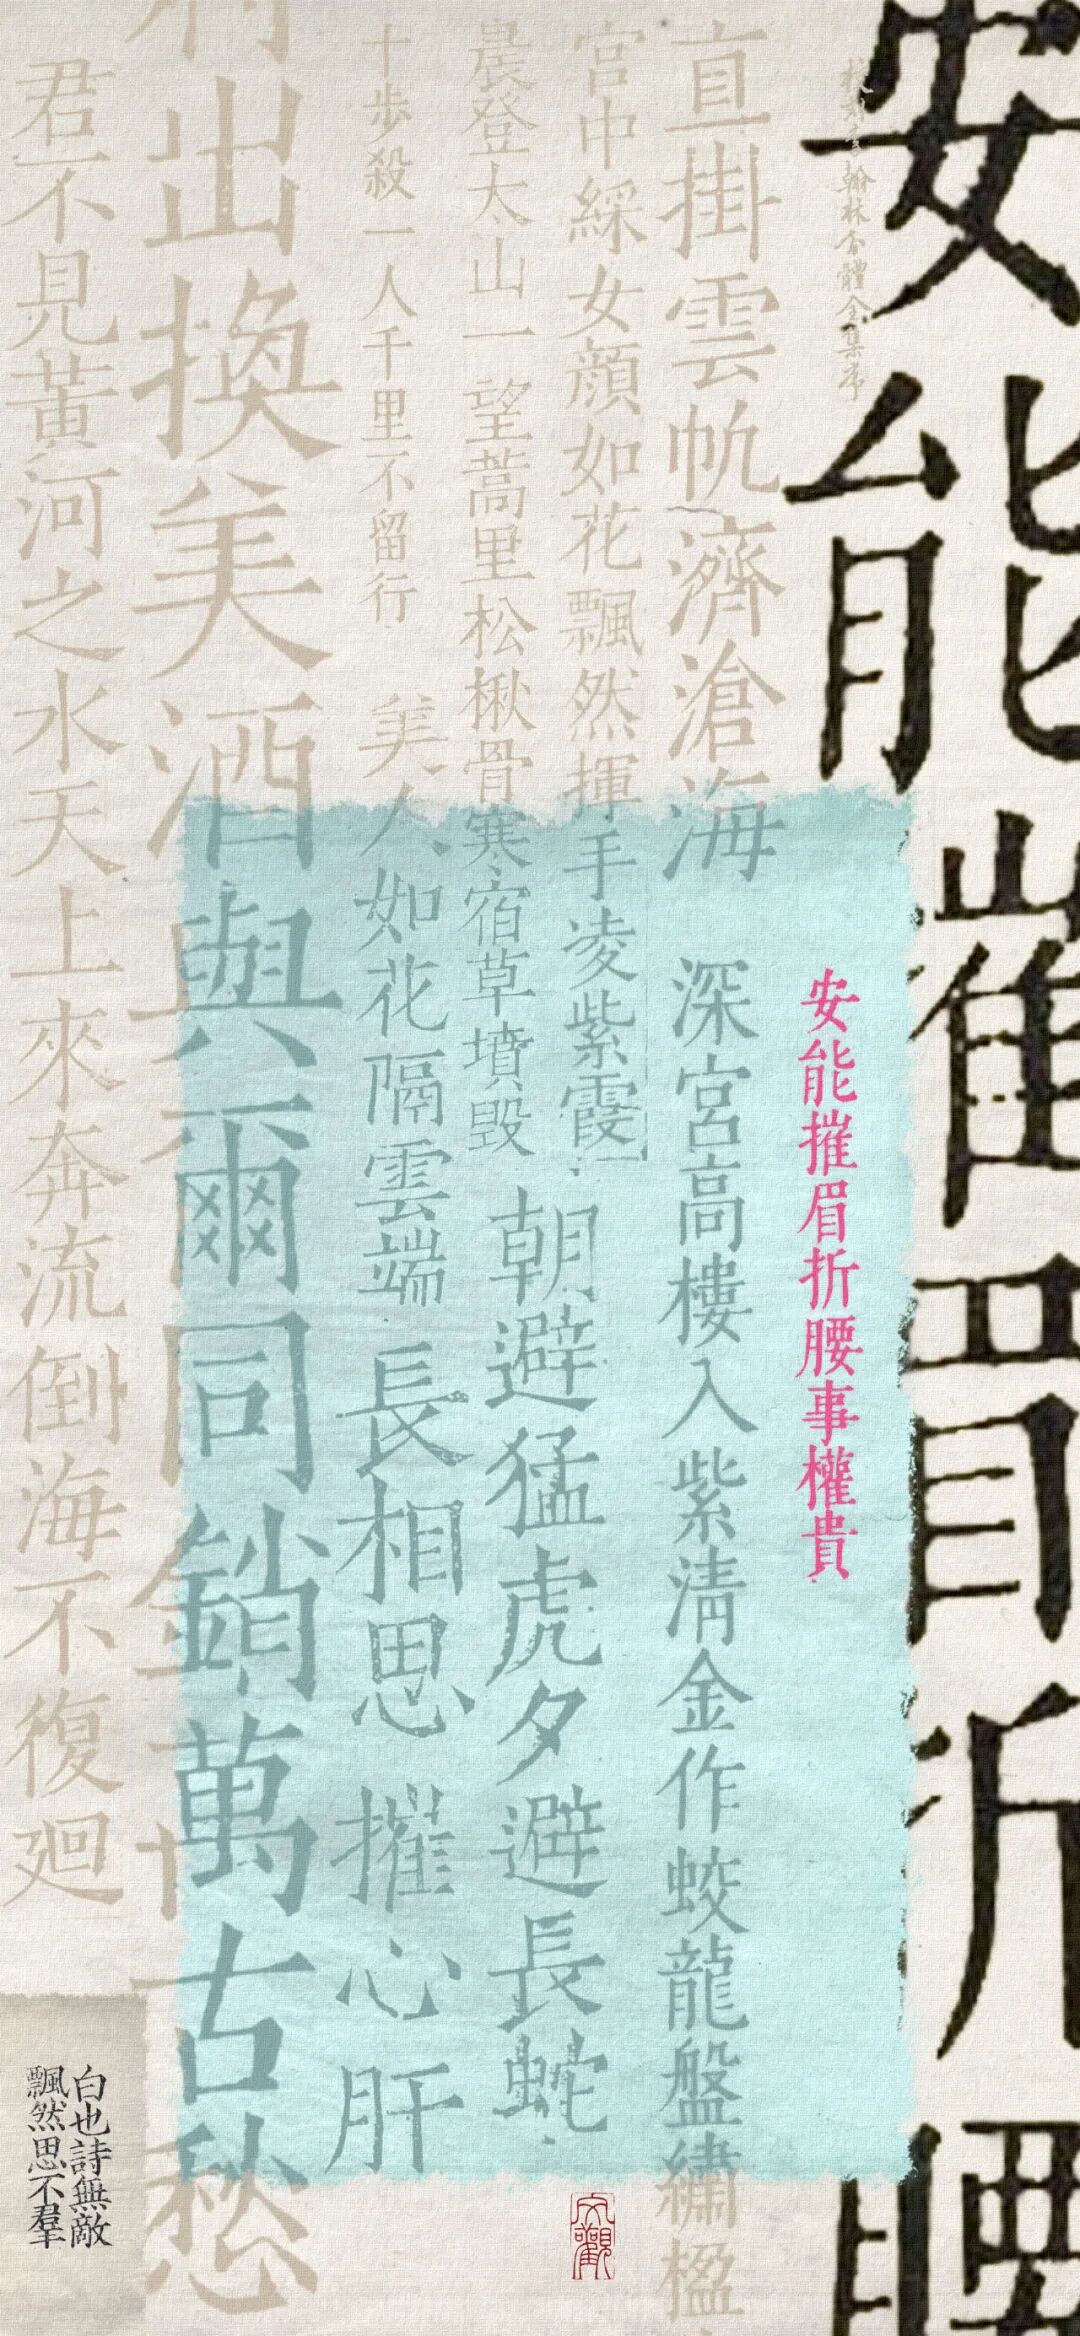 安能摧眉折腰
安能摧眉折腰事權貴
直掛雲帆濟滄海
深宮高樓入紫清金作蛟龍盤繡楹
宮中綵女顏如花飄然揮手凌紫霞
朝避猛虎夕避長蛇
晨登太山一望蒿里松楸骨寒宿草墳毀
十步殺一人千里不留行
美人如花隔雲端
長相思
摧心肝
出換美酒與爾同銷萬古愁
君不見黃河之水天上來奔流倒海不復迴
白也詩無敵
飄然思不羣
文觀